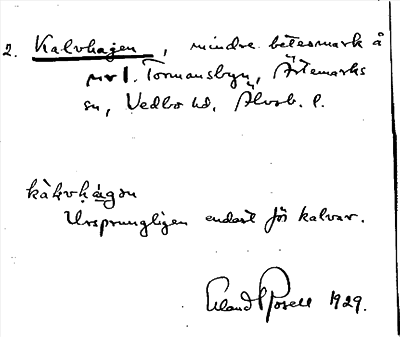 2. Kalvhagen, mindre betesmark å
nr 1. Tormansbyn, Ärtemarks
sn, Vedbo hd, Älvsb. l.
kàkvhágən
Ursprungligen endast för kalvar.
Erland Rosell 1929.